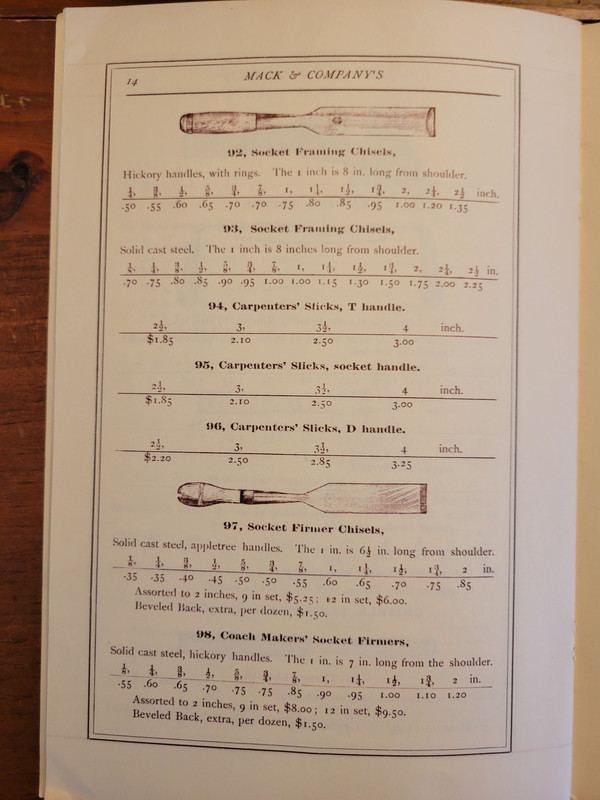 14
MACK & COMPANY'S
92, Socket Framing Chisels,
Hickory handles, with rings. The 1 inch is 8 in. long from shoulder.
¼, ⅜, ½, ⅝, ¾, ⅞, 1, 1¼, 1½, 1¾, 2, 2¼, 2½ inch.
.50 .55 .60 .65 .70 .70 .75 .80 .85 .95 1.00 1.20 1.35
93, Socket Framing Chisels,
Solid cast steel. The 1 inch is 8 inches long from shoulder.
⅛, ¼, ⅜, ½, ⅝, ¾, ⅞, 1, 1¼, 1½, 1¾, 2, 2¼, 2½ in.
.70 .75 .80 .85 .90 .95 1.00 1.00 1.15 1.30 1.50 1.75 2.00 2.25
94, Carpenters' Slicks, T handle.
2½, 3, 3½, 4 inch.
$1.85 2.10 2.50 3.00
95, Carpenters' Slicks, socket handle.
2½, 3, 3½, 4 inch.
$1.85 2.10 2.50 3.00
96, Carpenters' Slicks, D handle.
2½, 3, 3½, 4 inch.
$2.20 2.50 2.85 3.25
97, Socket Firmer Chisels,
Solid cast steel, appletree handles. The 1 in. is 6½ in. long from shoulder.
⅛, ¼, ⅜, ½, ⅝, ¾, ⅞, 1, 1¼, 1½, 1¾, 2 in.
.35 .35 .40 .45 .50 .50 .55 .60 .65 .70 .75 .85
Assorted to 2 inches, 9 in set, $5.25; 12 in set, $6.00.
Beveled Back, extra, per dozen, $1.50.
98, Coach Makers' Socket Firmers,
Solid cast steel, hickory handles. The 1 in. is 7 in. long from the shoulder.
⅛, ¼, ⅜, ½, ⅝, ¾, ⅞, 1, 1¼, 1½, 1¾, 2 in.
.55 .60 .65 .70 .75 .75 .85 .90 .95 1.00 1.10 1.20
Assorted to 2 inches, 9 in set, $8.00; 12 in set, $9.50.
Beveled Back, extra, per dozen, $1.50.